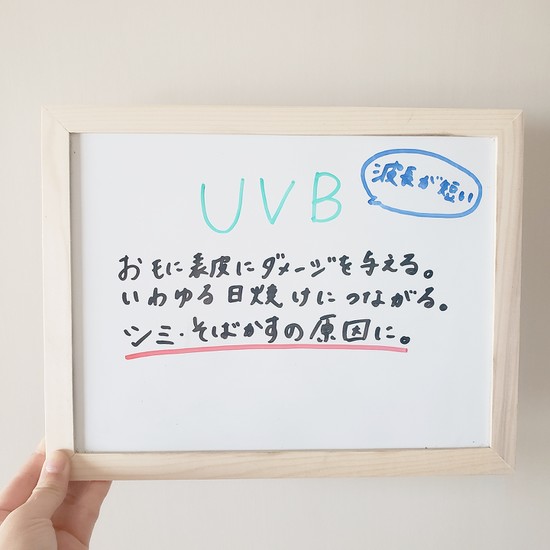 UVB
波長が短い
おもに表皮にダメージを与える。
いわゆる日焼けにつながる。
シミ・そばかすの原因に。